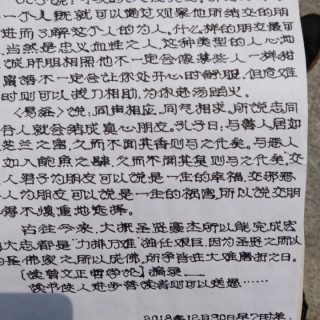 一个人既就可以通过观察他所结交的朋
进而了解这个人的为人。什么样的朋友最可
当然是忠义血性之人,这种类型的人心地
诚肝胆相照他不一定会像某些人一样甜
蜜语不一定会让你处开心时的解服,但危难
时则可以拔刀相助,为你赴汤蹈火。
《易经》说:同声相应,同气相求,所说志同
合人就会结成真心朋友。孔子曰:与善人居如
芝兰之室,久而不闻其香则与之化矣。与恶人
如入鲍魚之肆,久而不闻其臭则与之化矣,交
人君子为朋友可以说是一生的幸福,交邪恶
人为朋友可以说是一生的祸害,所以说交朋
得不慎重地选择。
古往今来,大抵圣贤豪杰所以能完成宏
大志都是力排万难,独任艰巨,因为圣贤之所以
圣佛家之所以成佛,的乎皆在大难磨折之日。
[读曾文正哲学论]随录
读书使人进步善读者则可以送您……
2018年12月30日早7时